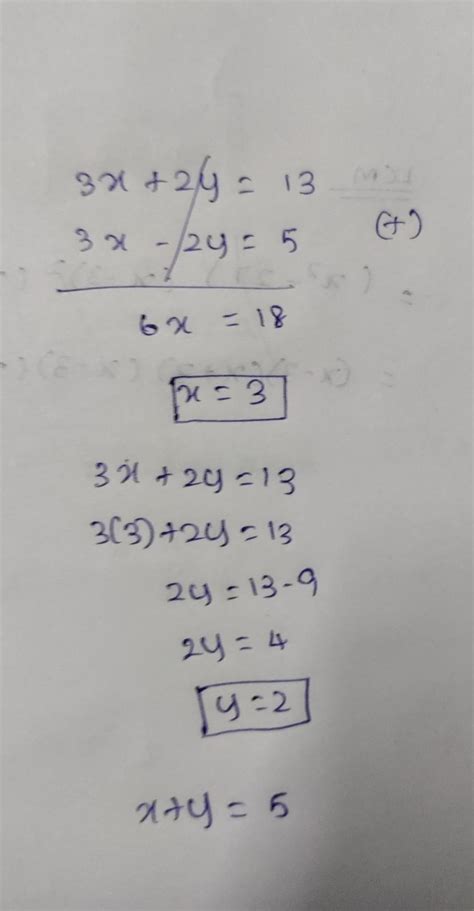 3x + 2y = 13
3x - 2y = 5 (+)
6x = 18
x = 3
3x + 2y = 13
3(3) + 2y = 13
2y = 13 - 9
2y = 4
y = 2
x + y = 5